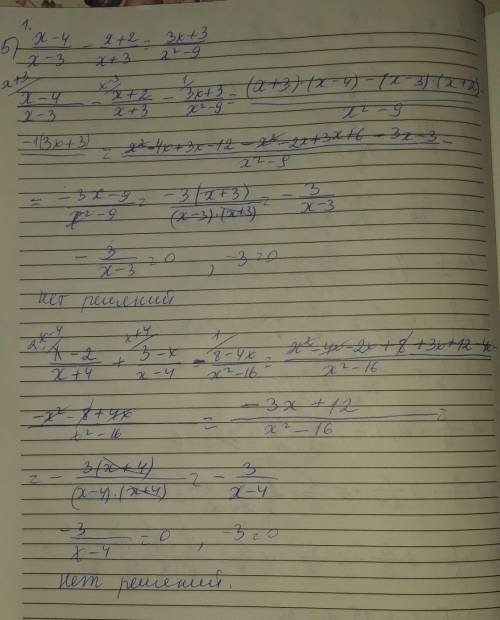 1.
б) (x-4)/(x-3) - (x+2)/(x+3) = (3x+3)/(x²-9)
x+3/ (x-4)/(x-3) - x-3/ (x+2)/(x+3) - 1/ (3x+3)/(x²-9) = ((x+3)·(x-4) - (x-3)·(x+2)-)/(x²-9)
-1(3x+3) = (x²-4x+3x-12-x²-2x+3x+6-3x-3)/(x²-9) =
= (-3x-9)/(x²-9) = (-3(x+3))/((x-3)·(x+3)) = - 3/(x-3)
- 3/(x-3) = 0 , -3=0
Нет решений
2. x-4/ (x-2)/(x+4) + x+4/ (3-x)/(x-4) = 1/ (8-4x)/(x²-16) = (x²-4x-2x+8+3x+12-4x-)/(x²-16)
(-x²-8+4x)/(x²-16) = (-3x+12)/(x²-16) =
= - (3(x+4))/((x-4)·(x+4)) = - 3/(x-4)
-3/(x-4) = 0 , -3=0
Нет решений.